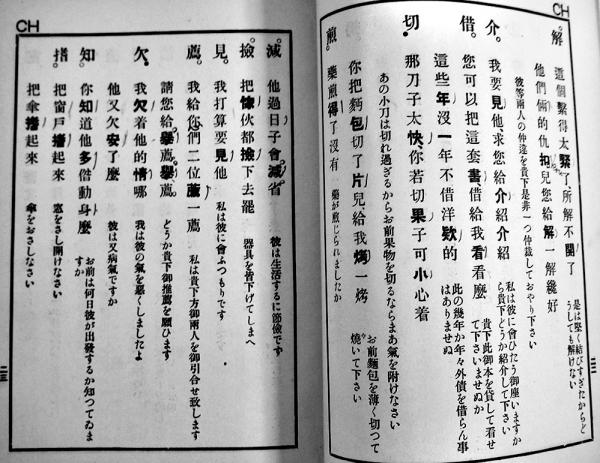 CH
解。 這個繫得太緊了、所解不開了
是は堅く結びすぎたからどうしても解けない
他們倆的仇扣兒您給解一解纔好
彼等兩人の仲違を貴下是非一つ仲裁しておやり下さい
介。 我要見他、求您給介紹介紹
私は彼に會ひたう御座いますから貴下どうか紹介して下さい
借。 您可以把這套書借給我看看麼
貴下此御本を貸して看せて下さいませぬか
這些年沒一年不借洋欵的
此の幾年か年々外債を借らん事はありませぬ
切。 那刀子太快、你若切果子可小心着
あの小刀は切れ過ぎるからお前果物を切るならまあ氣を附けなさい
你把麪包切了片兒給我烤一烤
お前麵包を薄く切つて燒いて下さい
煎。 藥煎得了沒有
藥が煎じられましたか
二二
CH
減。 他過日子會減省
彼は生活するに節儉です
撿。 把傢伙都撿下去罷
器具を皆下げてしまへ
見。 我打算要見他
私は彼に會ふつもりです
薦。 我給你們二位薦一薦
私は貴下方御兩人を御引合せ致します
請您給擧薦擧薦。
どうか貴下御推薦を願ひます
欠。 我欠着他的情哪
我は彼の氣を惡くしましたよ
他又欠安了麼
彼は又病氣ですか
知。 你知道他多偺動身麼
お前は何日彼が出發するか知つてゐますか
搘。 把窗戶搘起來
窓をさし開けなさい
把傘搘起來
傘をおさしなさい
二三